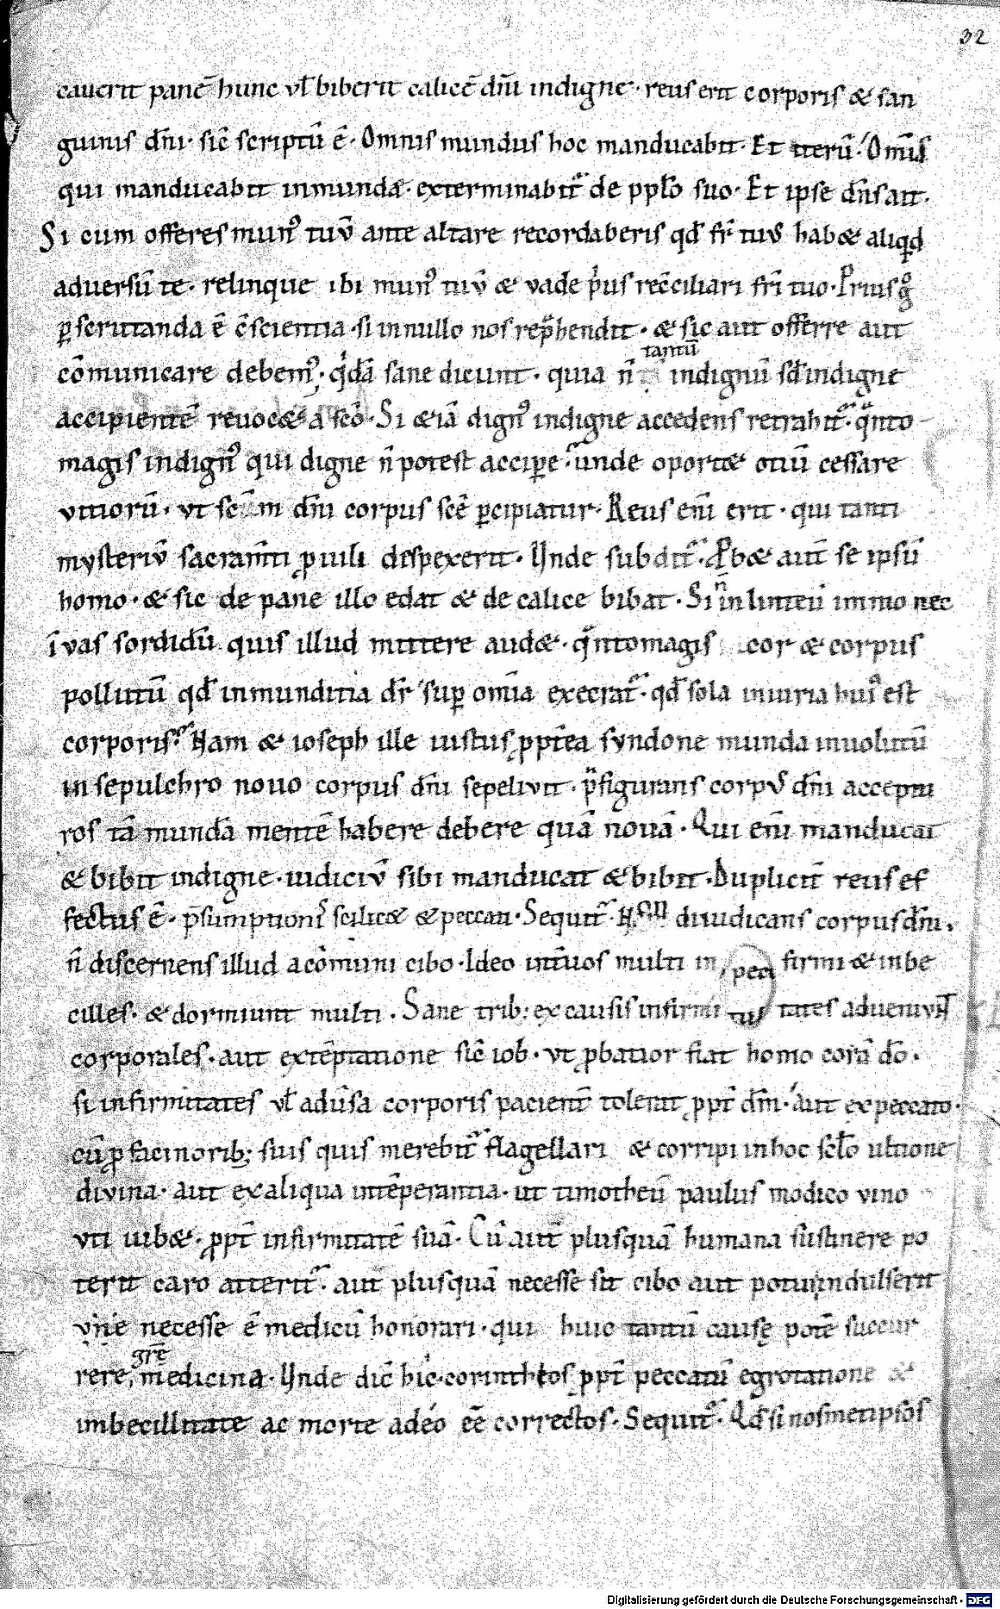 32
caverit panē hunc vł biberit calicē dn̄i indigne · reus erit corporis & san
guinis dn̄i · sic̄ scriptū ē · Omnis mundus hoc manducabit · Et iterū · Om̄is
qui manducabit inmunda · exterminabit᷑ de pplo suo · Et ipse dn̄s ait ·
Si cum offeres munꝰ tuū ante altare recordaberis qđ fr̄ tuus hab& aliqđ
adversū te · relinque ibi munꝰ tuū & vade pͥus recc̄iliari fr̄i tuo · Prius gͦ
ꝑscrutanda ē c̄scientia · si in nullo nos rep̄hendit · & sic aut offerre aut
cōmunicare debemꝰ · qͥdā sane dicunt · quia n̄ tantū indignū sđ indigne
accipientē revoc& a sc̄o · Si &iā dignꝰ indigne accedens retrahit᷑ · qͣnto
magis indignꝰ qui digne n̄ potest accipe · unde oport& otiū cessare
vitiorū · vt sc̄m dn̄i corpus sc̄e ꝑcipiatur · Reus eni᷑ erit · qui tanti
mysteriū sacram̄ti ꝓ vili despexerit · Unde subdit᷑ · Ꝓb& aut̄ se ipsū
homo · & sic de pane illo edat & de calice bibat · Si n̄ in linteū immo nec
ī vas sordidū quis illud mittere aud& · qͣnto magis cor & corpus
pollutū qđ inmunditia dr̄ suꝑ omīa execrat᷑ · qđ sola iniuria huiꝰ est
corporis · Nam & ioseph ille iustus ꝓpterea syndone munda involutū
in sepulchro novo corpus dn̄i sepelivit · p̄figurans corpꝰ dn̄i acceptu
ros tā mundā mentē habere debere quā novā · Qui eni᷑ manducat
& bibit indigne · iudiciū sibi manducat & bibit · Duplicit̄ reus ef
fectus ē · p̄sumptionis scilic& & peccati · Sequit᷑ · Non diiudicans corpus dn̄i ·
n̄ discernens illud a cōmuni cibo · Ideo int̄ vos multi infirmi & inbe
cilles · & dormiunt multi · Sane trib; ex causis infirmitates adveniunt
corporales · aut ex temptatione sic̄ iob · vt ꝓbatior fiat homo corā dō ·
si infirmitates vł adv̄sa corporis pacient̄ tolerat ꝓpt̄ dm̄ · aut ex peccato ·
cū ꝓ facinorib; suis quis merebit᷑ flagellari & corripi in hoc sclo ultione
divina · aut ex aliqua intēperantia · ut timotheū paulus modico vino
vti iub& · ꝓpt̄ infirmitatē suā · Cū aut̄ plusquā humana sustinere po
terit caro atterit᷑ · aut plusquā necesse sit cibo aut potui indulserit
necesse ē medicū honorari · qui huic tantū cause potē succur
rere grē medicina · Unde dic̄ hic corintheos ꝓpt̄ peccatū egrotatione &
imbecillitate ac morte adeo eē correctos · Sequit᷑ · Qđ si nosmetipsos
Digitalisierung gefördert durch die Deutsche Forschungsgemeinschaft - DFG